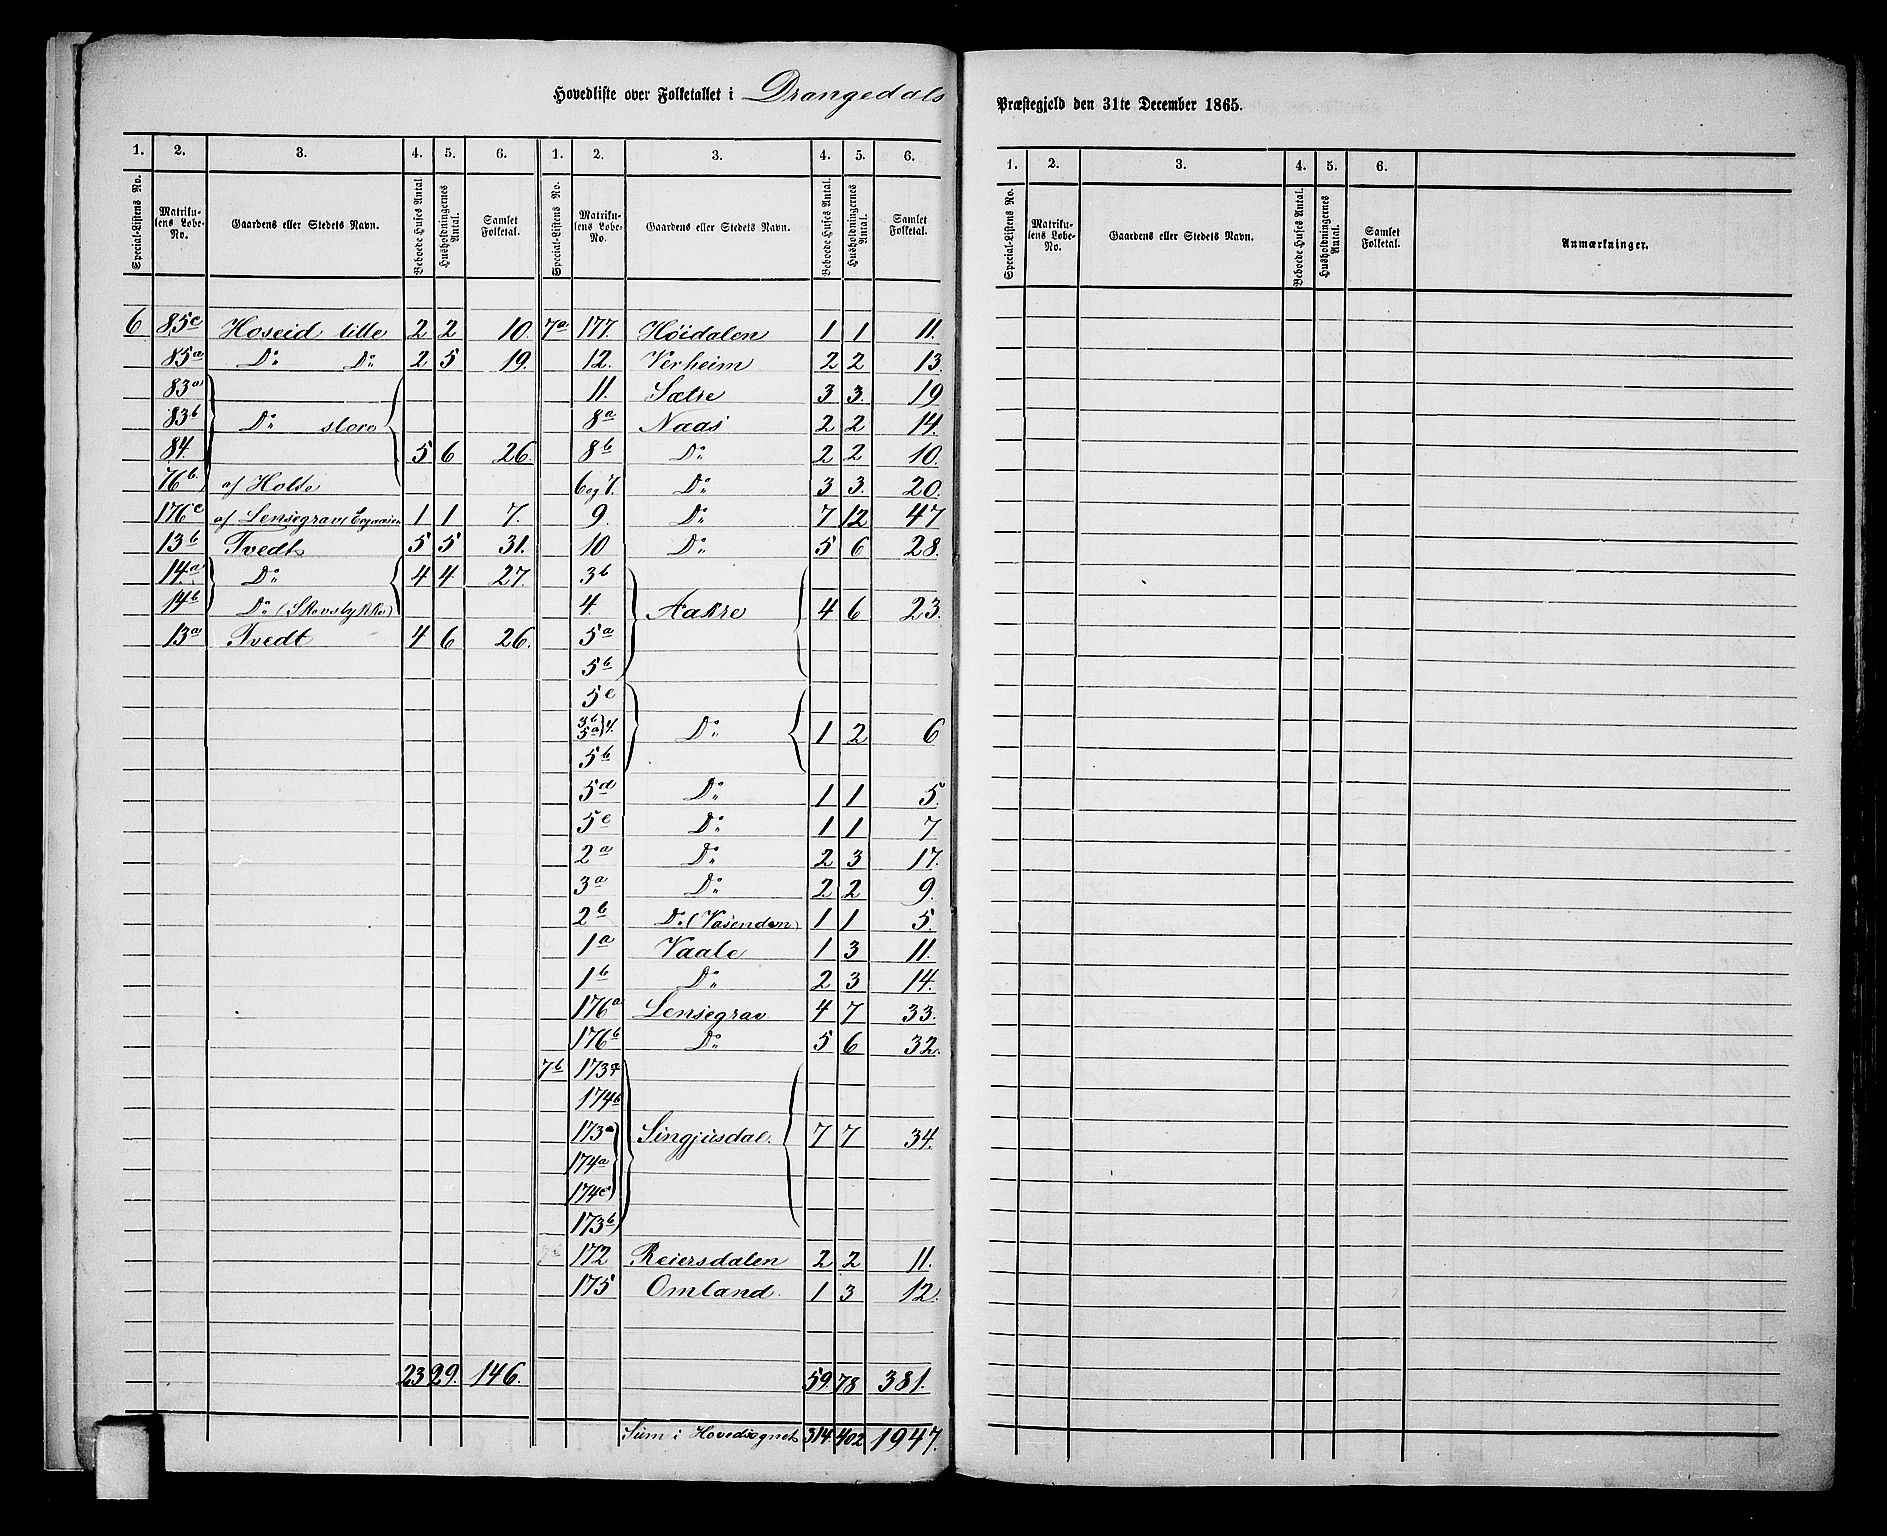 Hovedliste over Folketallet i Drangedals Præstegjeld den 31te December 1865.
1. 2. 3. 4. 5. 6. 1. 2. 3. 4. 5. 6.
Special-Listens No. Matrikulens Løbe-No. Gaardens eller Stedets Navn. Beboede Huses Antal. Husholdningernes Antal. Samlet Folketal. Special-Listens No. Matrikulens Løbe-No. Gaardens eller Stedets Navn. Beboede Huses Antal. Husholdningernes Antal. Samlet Folketal.
6 85c Hoseid lille 2 2 10.
85a Do Do 2 5 19.
83a
83b Do store
84. 5 6 26.
76b. af Holte
176c af Lensegrav 1 1 7.
13b Tvedt 5 5 31.
14a Do 4 4 27.
14b Do (Skovstykke)
13a Tvedt 4 6 26.
23 29. 146.
7a 177. Höidalen 1 1 11.
12. Verheim 2 2 13.
11. Sætre 3 3. 19
8a Naas 2 2 14.
8b Do 2 2 10.
6 og 7. Do 3 3. 20.
9. Do 7 12 47
10 Do 5 6 28.
3b
4. Aakre 4 6 23.
5a
5b
5c
3b 5a 4. Do 1 2 6
5b
5d Do 1 1 5.
5e Do 1 1 7
2a Do 2 3 17.
3a Do 2 2 9.
2b Do (Vasenden) 1 1 5.
1a Vaale 1 3 11.
1b Do 2 3 14.
176a Lensegrav 4 7 33.
176b Do 5 6 32.
7b 173
174b
173a Singjusdal. 7 7 34.
174a
174c
173b
172 Reiersdalen 2 2 11.
175 Omland. 1 3 12.
59. 78 381.
Sum i Hovedsognet 314. 402 1947.
1. 2. 3. 4. 5. 6.
Special-Listens No. Matrikulens Løbe-No. Gaardens eller Stedets Navn. Beboede Huses Antal. Husholdningernes Antal. Samlet Folketal. Anmærkninger.